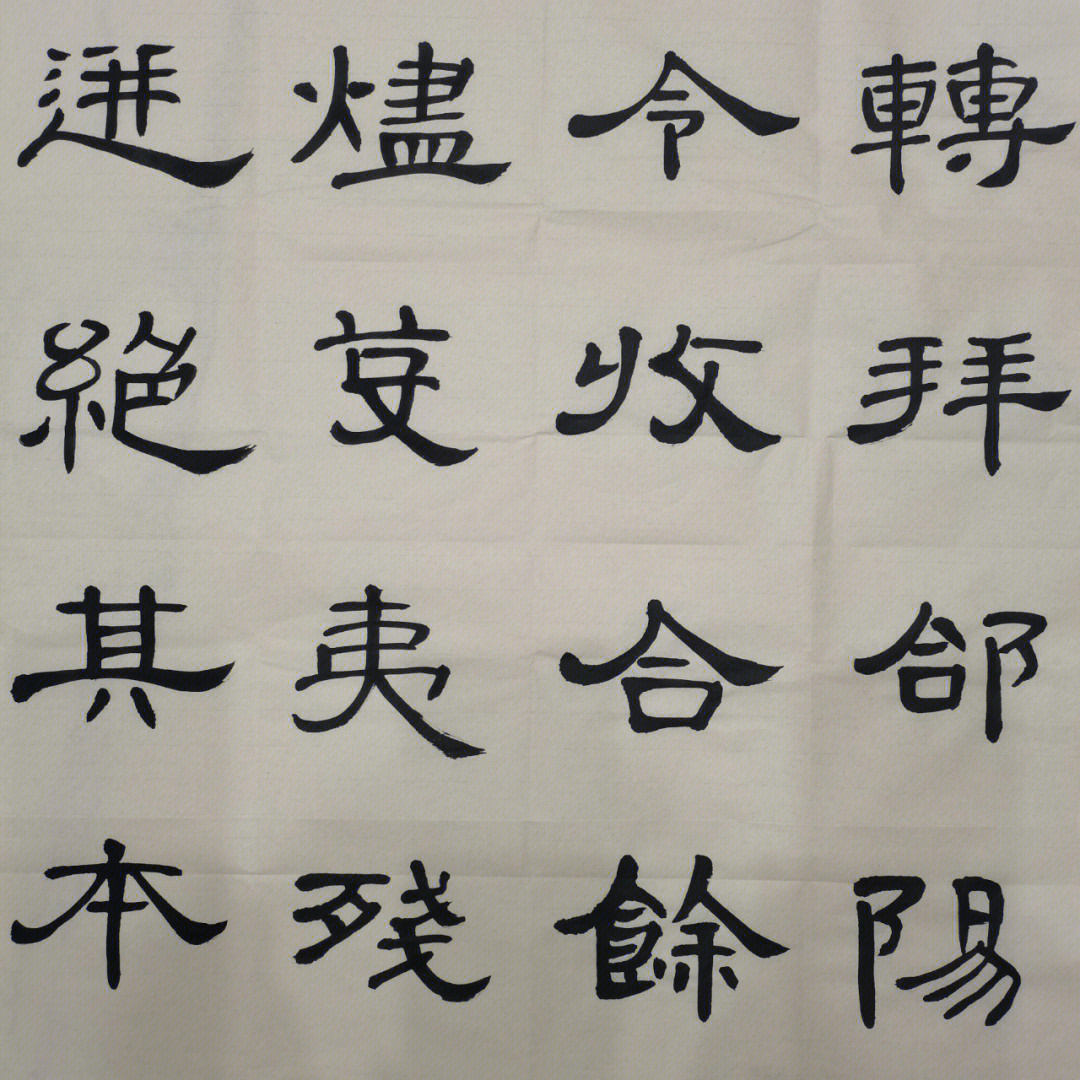 轉拜郃陽
令收合餘
燼芟夷殘
迸絕其本